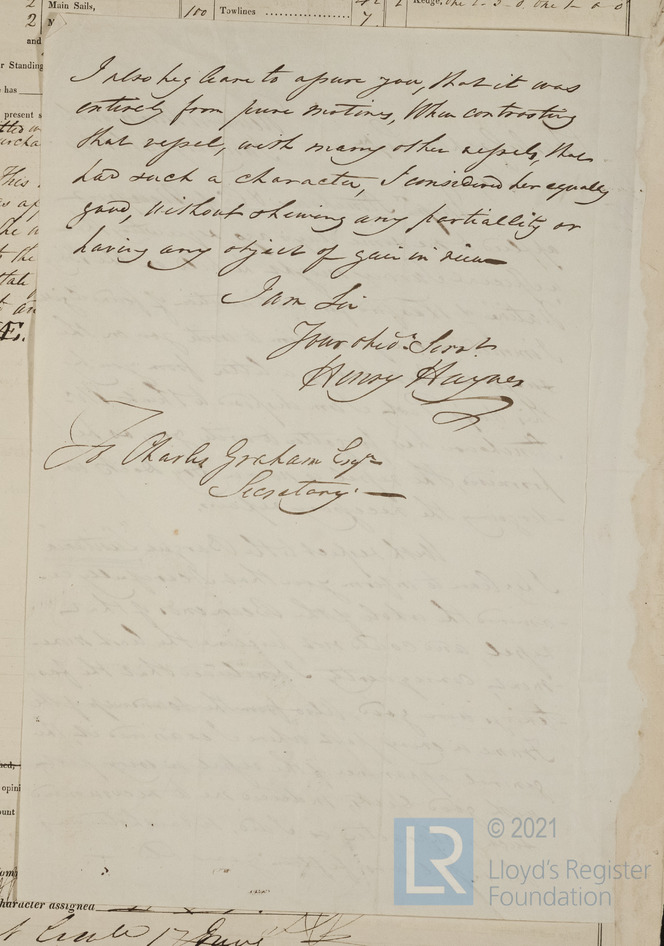 Main Sails,
100
Towlines
7
2
2
and
r Standing
has
present s
I also beg leave to assure you, that it was
entirely from pure motives, When contrasting
that vessel, with many other vessels, that
had such a character, I considered her equally
good, without shewing any partiallity or
having any object of gain in view
I am Sir
Your obedt. Servt.
Henry Haynes
To Charles Graham Esqr
Secretary.
This
opini
ount
haracter assigned
17 June
LR
© 2021
Lloyd's Register
Foundation